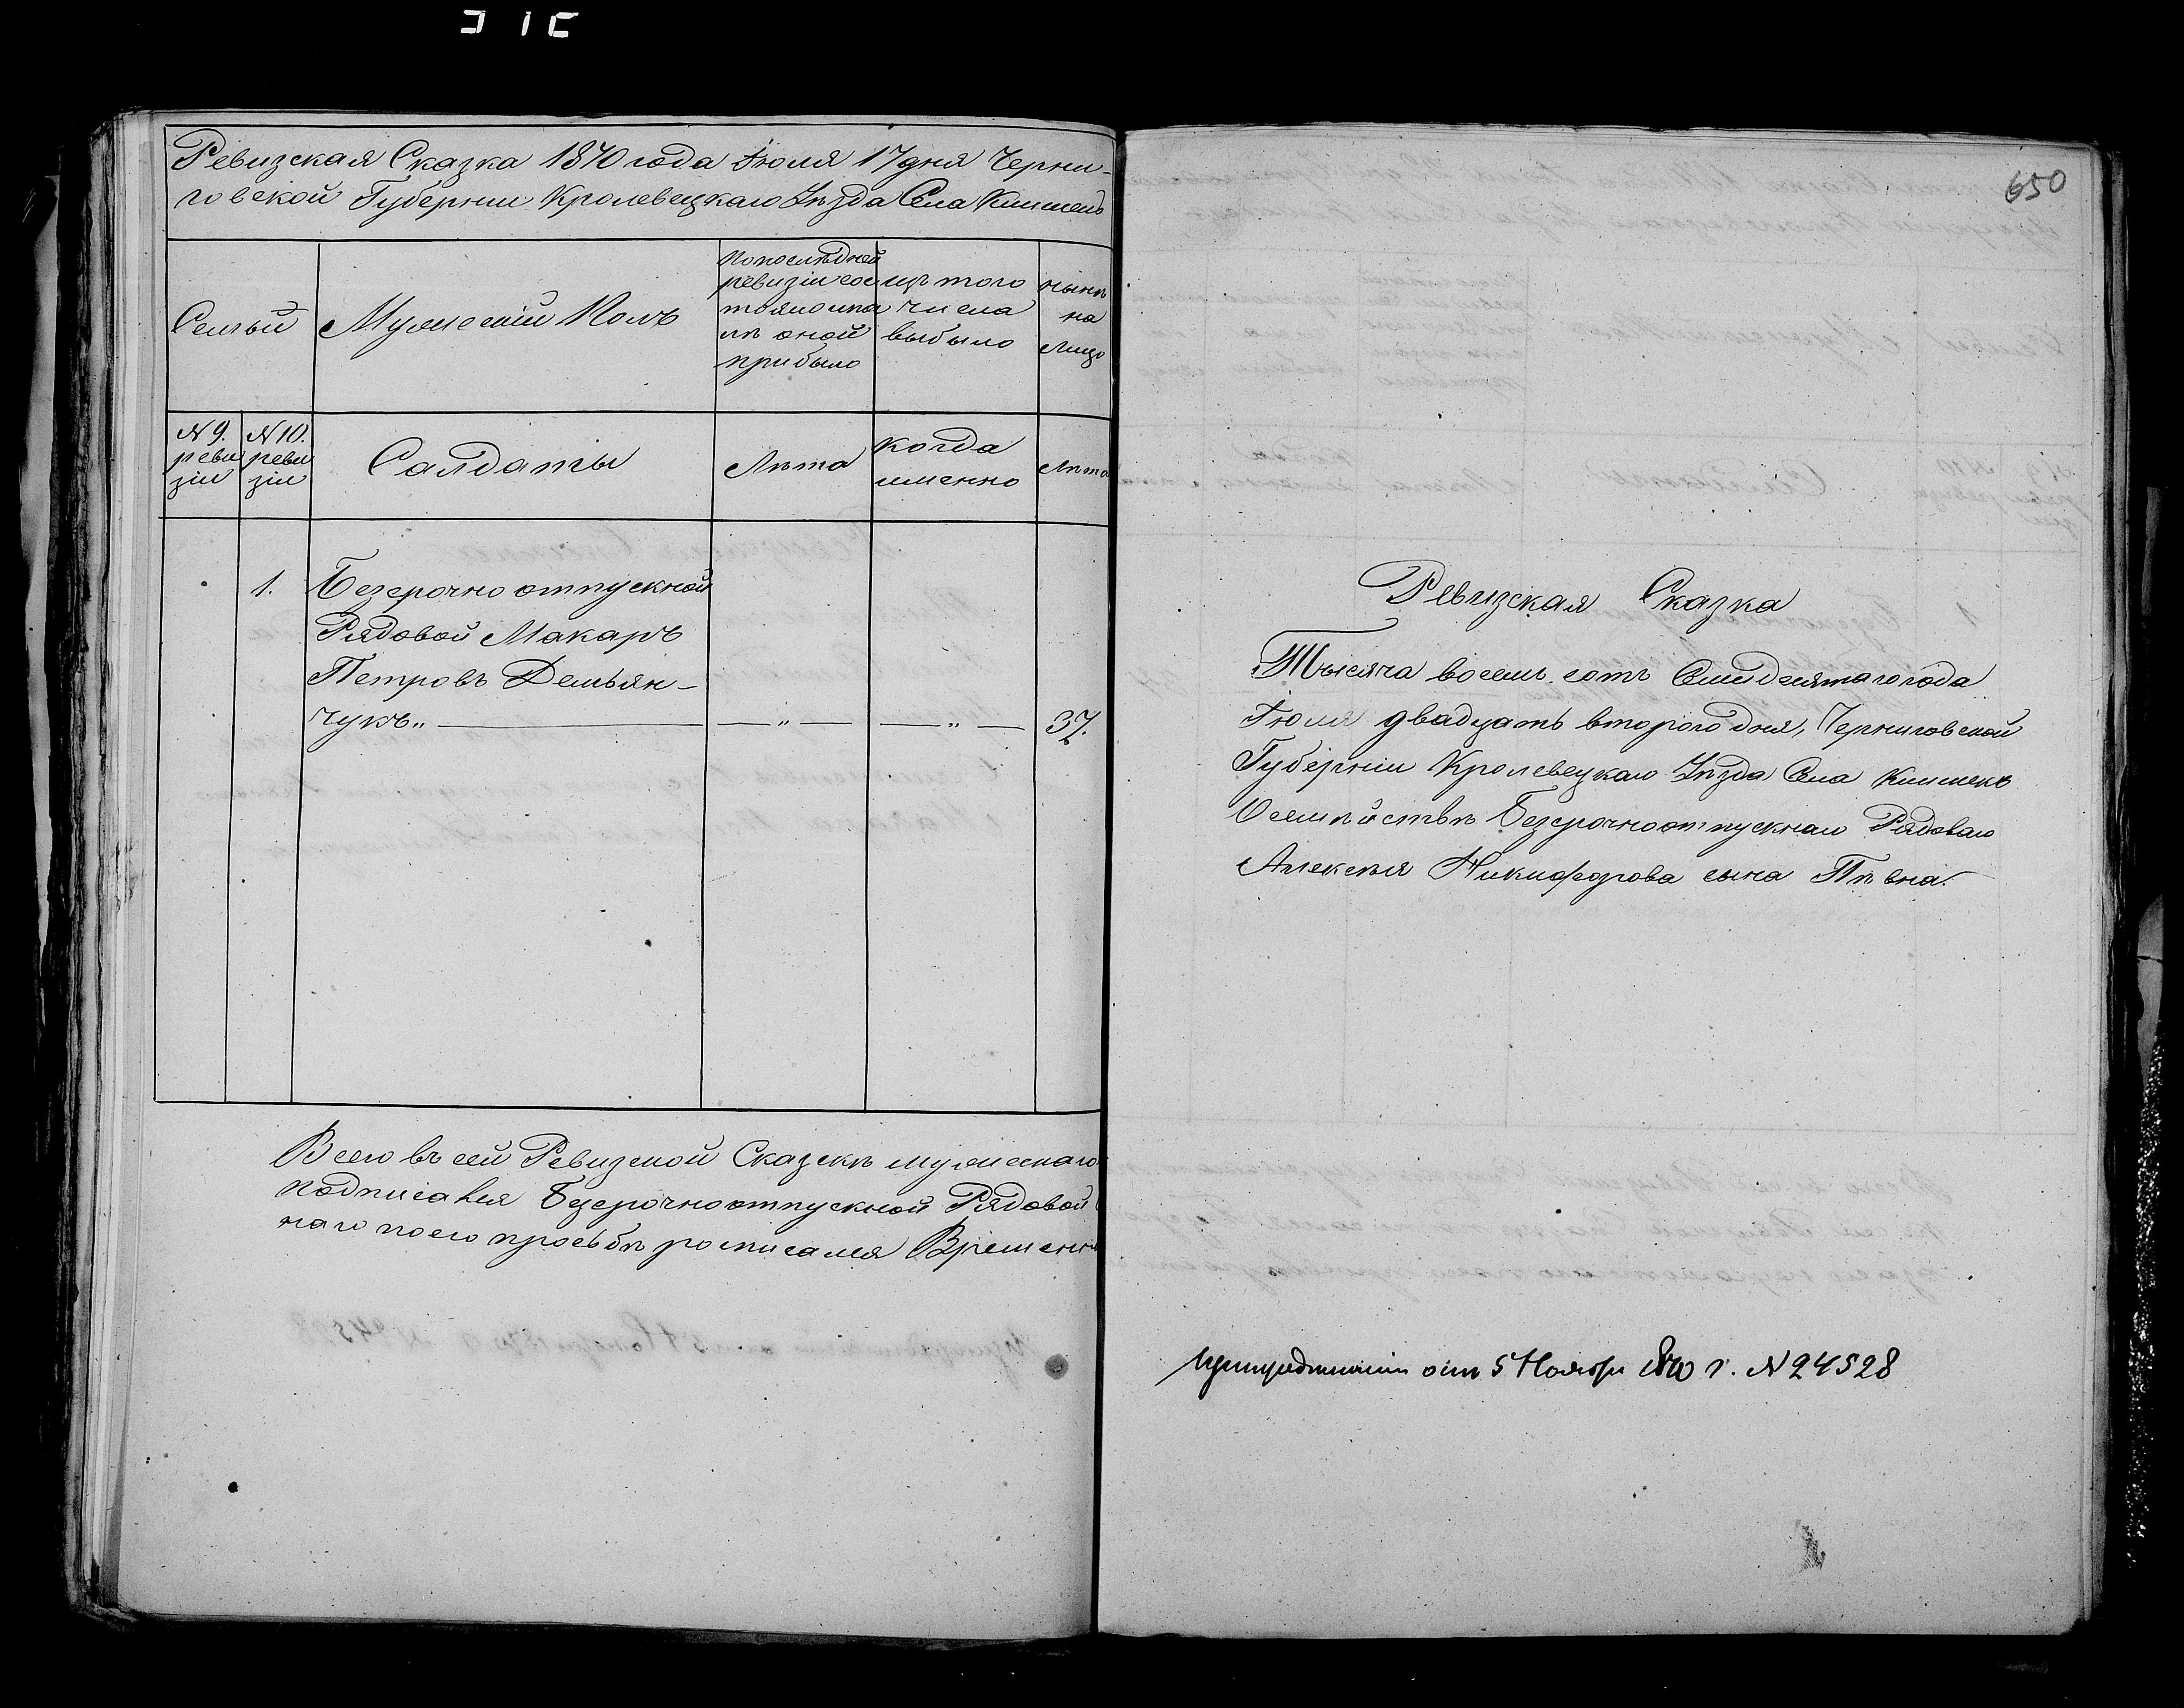 Ревизская Сказка 1870 года Іюля 17 дня Черни-
говской Губерніи Кролевецкаго Уѣзда Села Клишекъ
Семьи
Мужескій Полъ
По послѣдней
ревизіи сос
тояло и по
слѣ оной
прибыло
изъ того
числа
выбыло
нынѣ
на
лицо
N 9.
реви
зіи
N 10.
реви
зіи
Салдаты
Лѣта
когда
именно
Лѣта
1. Безсрочно отпускной
Рядовой Макаръ
Петровъ Демьян-
чукъ „ — „ — — „ — 37.
Всего въ сей Ревизской Сказскѣ мужескаго
подписался Безсрочноотпускной Рядовой
наго по его просьбѣ росписался Временн
650
Ревизская Сказка
Тысяча восемь сотъ Семидесятаго года
Іюля двадцать втораго дня, Черниговской
Губерніи Кролевецкаго Уѣзда Села Клишекъ
О семѣйствѣ Безсрочноотпускнаго Рядоваго
Алексѣя Никифорова сына Пѣвна.
отъ 5 Ноября 1870 г. N 24528